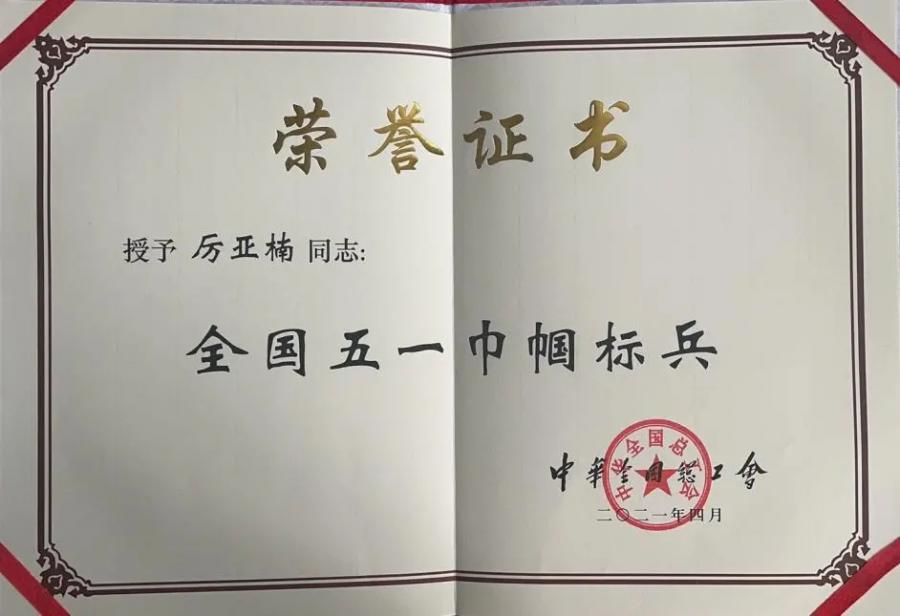 荣誉证书
授予 厉亚楠 同志:
全国五一巾帼标兵
中华全国总工会
中華全国總工會
二〇二一年四月